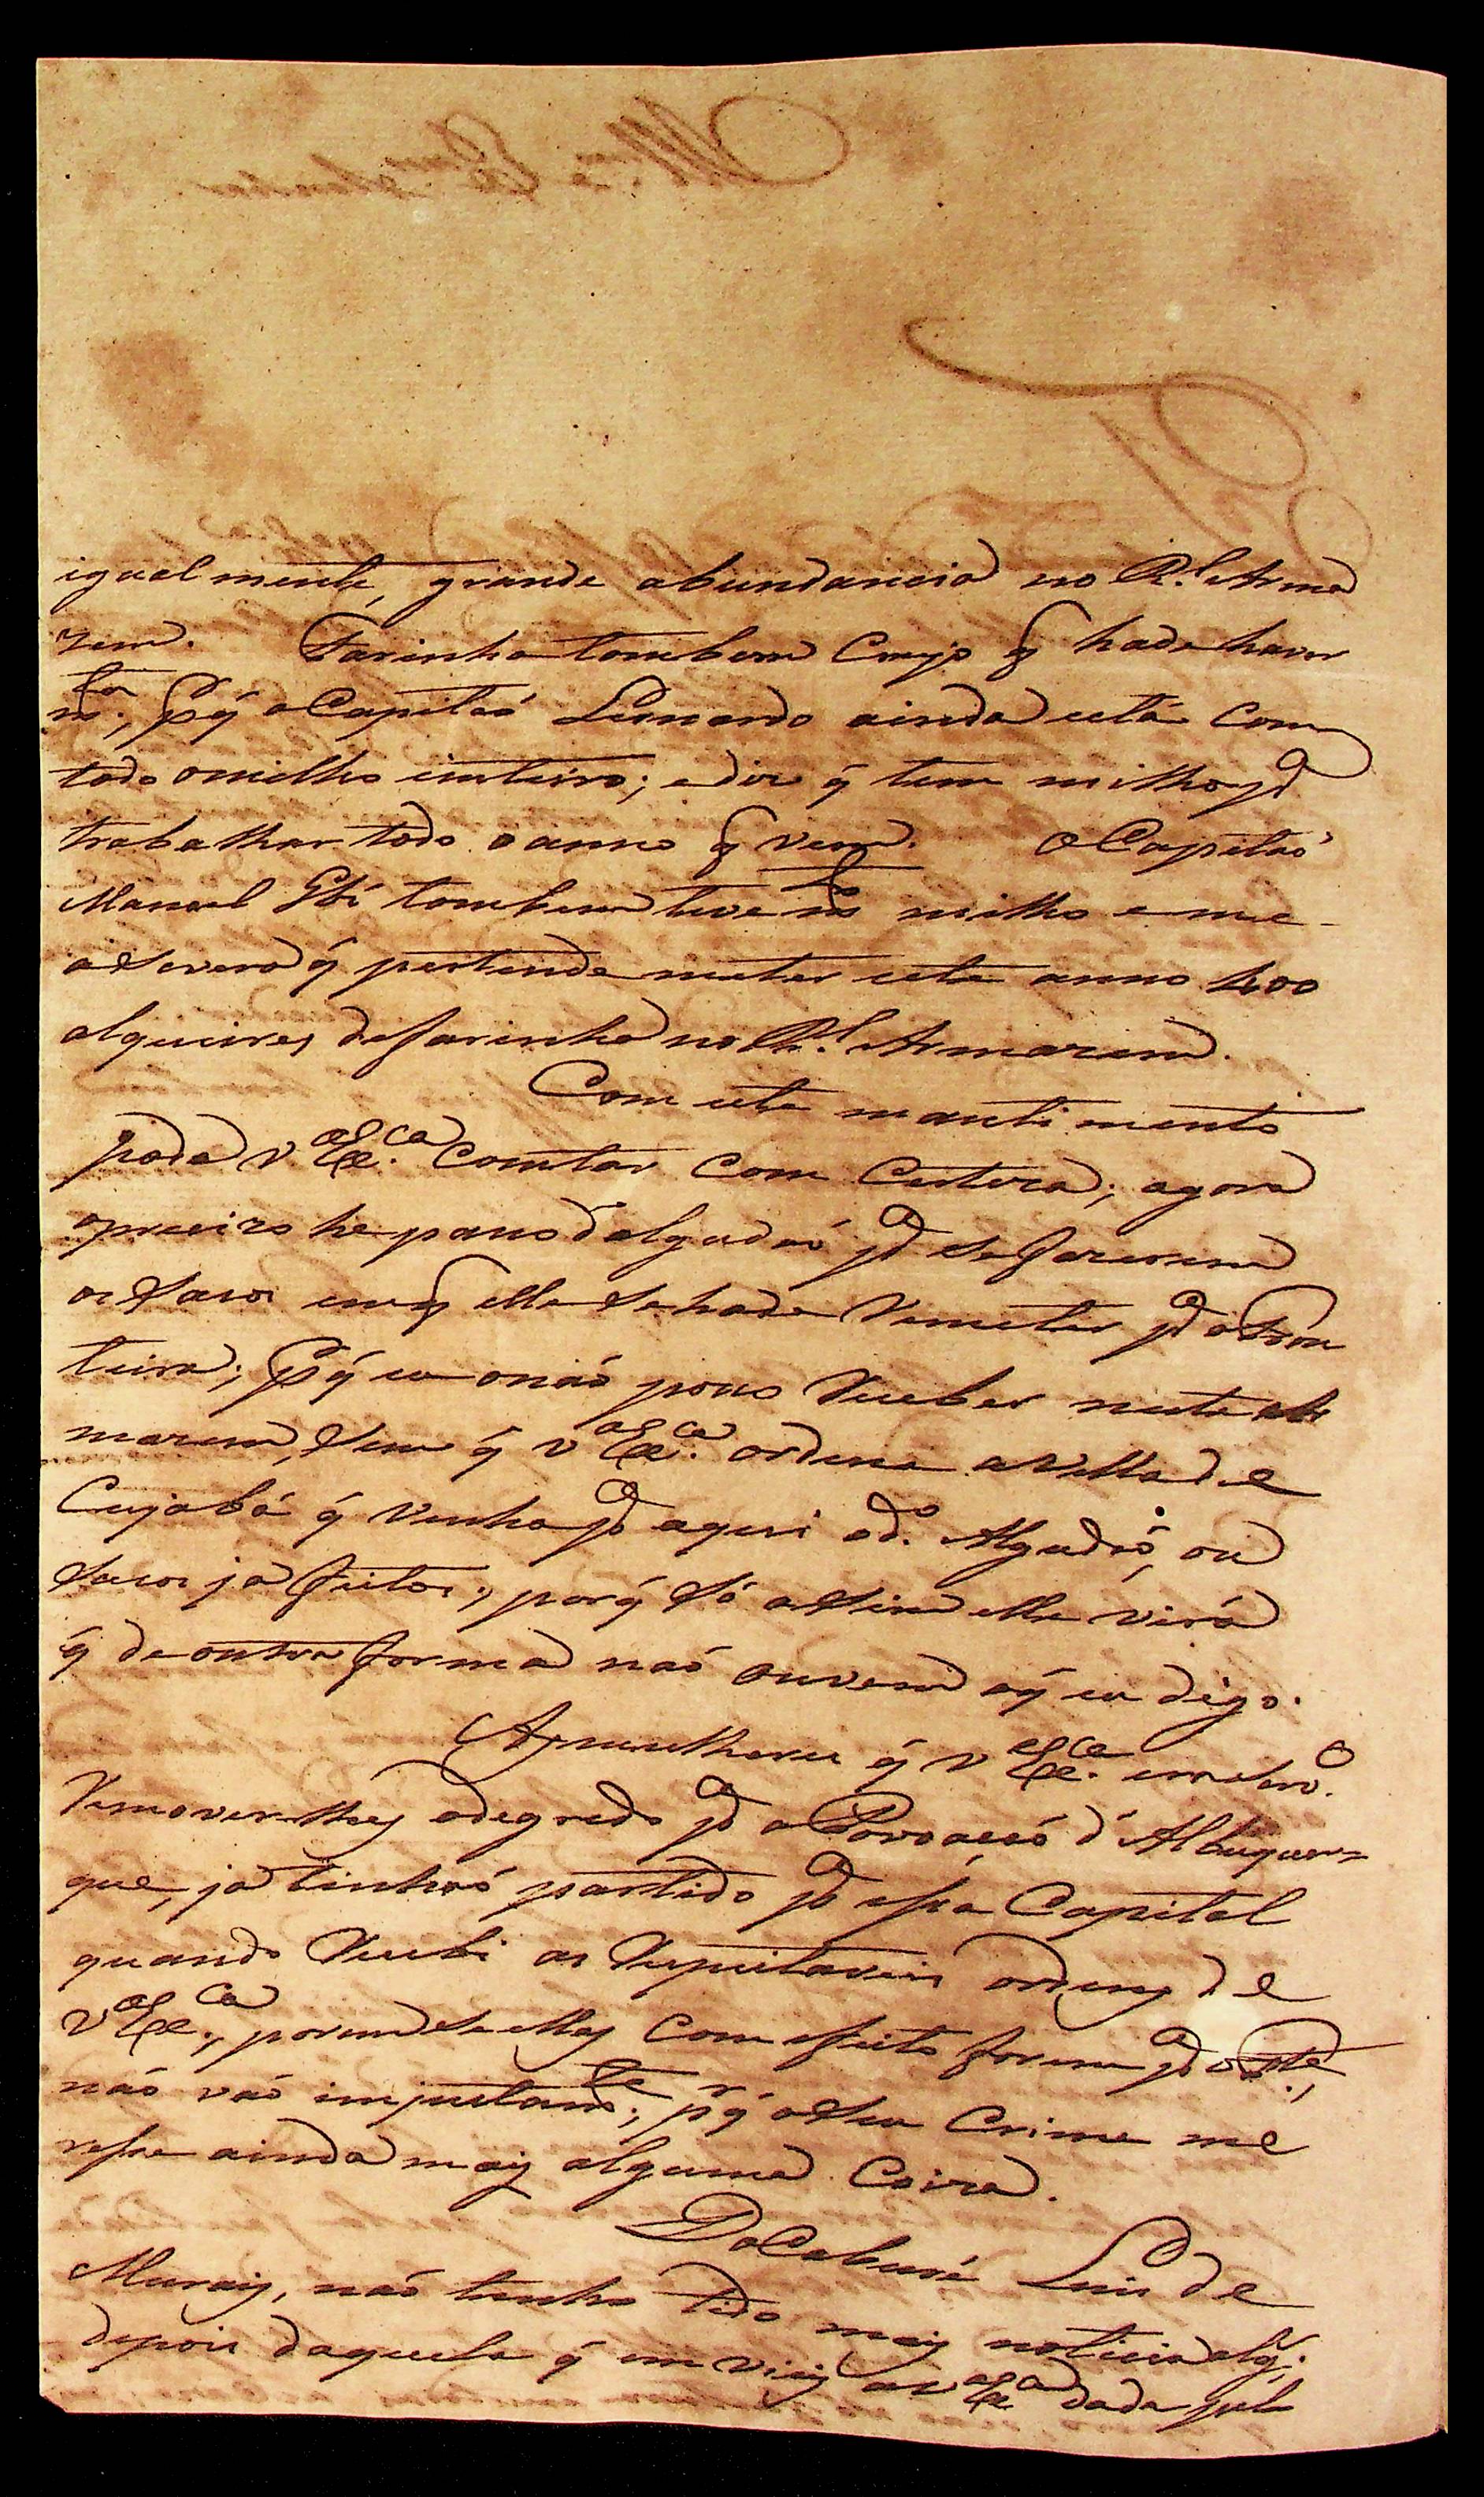 igualmente, grande abundancia no R.l Arma
zem. Farinha tombem Creyo q̃ hade haver
m.ta, P q̃ o Capitaõ Leonardo ainda está com
todo o milho inteiro; e diz q̃ tem milho p.a
trabalhar todo o anno q̃ vem. O Capitaõ
Manoel tombem teve m.to milho e me
aseverou q̃ pertende meter este anno 400
alqueires de farinha no R.l Armazem.
Com este mantimento
pode V Ex.ca Comtar Com Certeza; agora
o preciso he pano d'algudaõ p.a se fazerem
os Sacos em q̃ elle se hade Remeter p.a a Fron
teira; P q̃ eu o naõ poso Receber neste Ar
mazem, Sem q̃ V Ex.ca ordene a Villa de
Cuyabá q̃ Venha p.a aqui o d.o Algudaõ, ou
Sacos ja feitos; porq̃ Só asim elle virá
q̃ de outra forma naõ ouvem o q̃ eu digo.
As mulheres q̃ V Ex.ca
Remover-lhes o degredo p.a a Povoaçaõ d'Albuquer=
que, ja tinhaõ partido p.a essa Capital
quando Recebi as Respeitaveis ordens de
V Ex.ca, porem se ellas Com efeito forem p.a o
naõ vaõ injustam.te, p.r q̃ o Seu Crime me
resse ainda mais alguma Coiza.
Do Caburé Luis de
Morais, naõ tenho tido mais noticia alg.a
depois daquela q̃ emviey a V Ex.ca dada pel